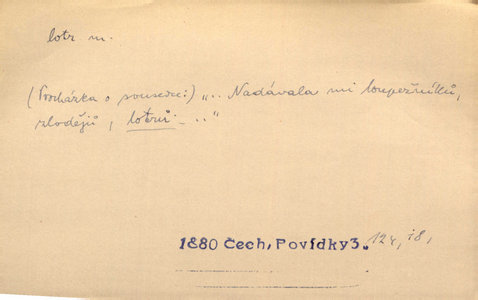 lotr m.
(Procházka o sousedce:) „.. Nadávala mi loupežníků,
zlodějů, lotrů - .."
1880 Čech, Povídky 3., 124, 18,